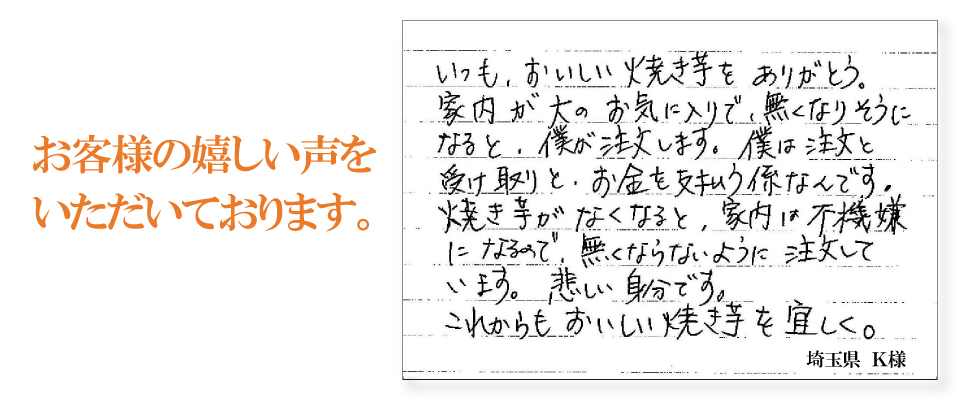 お客様の嬉しい声を
いただいております。
いつも、おいしい焼き芋を ありがとう。
家内が大のお気に入りで、無くなりそうに
なると、僕が注文します。僕は注文と
受け取りと、お金を支払う係なんです。
焼き芋がなくなると、家内は不機嫌
になるので、無くならないように注文して
います。悲しい身分です。
これからもおいしい焼き芋を宜しく。
埼玉県 K様